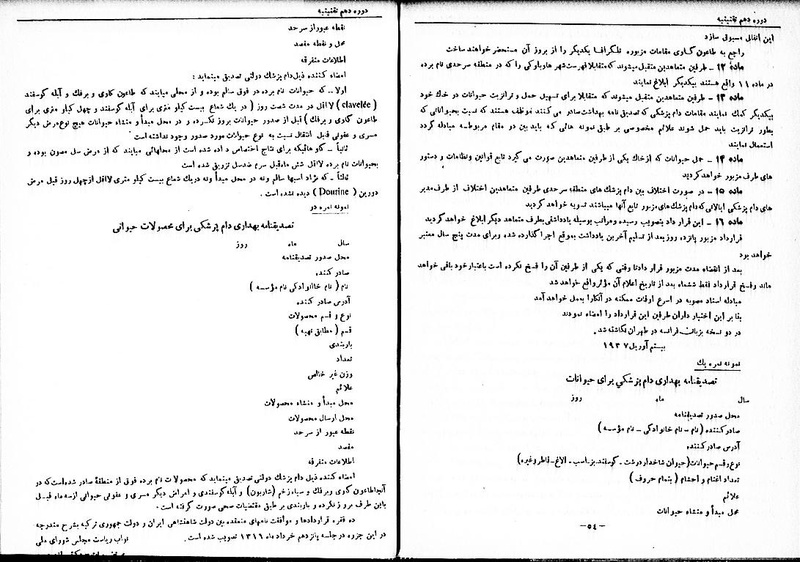 دوره دهم تقنینیه
این اتفاق مسبوق سازد
راجع به طاعون گاوی مقامات مزبوره تلگرافا یکدیگر را از بروز آن مستحضر خواهند ساخت
مادهٔ ۱۲ – طرفین متعاهدین متقبل میشوند که متقابلا فهرست شهرهاوبلوکی را که در منطقه سرحدی نام برده
در ماده ۱۱ واقع هستند بیکدیگر ابلاغ نمایند
مادهٔ ۱۳ – طرفین متعاهدین متقبل میشوند که متقابلا برای تسهیل حمل و ترانزیت حیوانات در خاک خود
بیکدیگر کمک نمایند مقامات دام پزشکی که تصدیق نامه بهداشت صادر می کنند موظف هستند که نسبت بحیواناتی که
بطور ترانزیت باید حمل شوند علائم مخصوصی بر طبق نمونه هائی که باید بین دو مقام مربوطه مبادله گردد
استعمال نمایند
مادهٔ ۱۴ – حمل حیوانات که از خاک یکی از طرفین متعاهدین صورت می گیرد تابع قوانین ونظامات و دستور
های طرف مزبور خواهد گردید
ماده ۱۵ – در صورت اختلاف بین دام پزشک های منطقه سرحدی طرفین متعاهدین اختلاف از طرف مدیر
های دام پزشکی ایالاتی که دام پزشک های مزبور تابع آنها میباشند تسویه خواهد گردید
ماده ۱۶ – این قرار داد بتصویب رسیده ومراتب بوسیله یادداشتی بطرف متعاهد دیگر ابلاغ خواهد گردید
قرارداد مزبور پانزده روز بعد از تسلیم آخرین یادداشت بموقع اجرا گذارده شده وبرای مدت پنج سال معتبر
خواهد بود
بعد از انقضاء مدت مزبور قرار داد تا وقتی که یکی از طرفین آن را فسخ نکرده است باعتبار خود باقی خواهد
ماند وفسخ قرارداد فقط ششماه بعد از تاریخ اعلام آن مؤثر واقع خواهد شد
مبادله اسناد مصوبه در اسرع اوقات ممکنه در آنکارا بعمل خواهد آمد
بنا بر این اختیار داران طرفین این قرارداد را امضاء نمودند
در دو نسخه بزبان فرانسه در طهران نگاشته شد.
بیستم آوریل ۱۹۳۷
نمونه نمره یک
تصدیقنامه بهداری دام پزشکی برای حیوانات
سال ماه روز
محل صدور تصدیقنامه
صادر کننده (نام – نام خانوادگی – نام مؤسسه)
آدرس صادر کننده
نوع و قسم حیوانات (حیوان شاخدار درشت. گوسفند. بز. اسب. الاغ. قاطر وغیره)
تعداد اغنام و احشام (بتمام حروف)
علائم
محل مبدأ و منشاء حیوانات
– ۵٤ –
دوره دهم تقنینیه
نقطه عبور از سرحد
محل و نقطه مقصد
اطلاعات متفرقه
امضاء کننده ذیل دام پزشک دولتی تصدیق مینماید :
اولا .. که حیوانات نام برده در فوق سالم بوده و از محلی میآیند که طاعون گاوی و برفک و آبله گوسفند
( clavelée ) لااقل در مدت شصت روز ( در یک شعاع بیست کیلو متری برای آبله گوسفند و چهل کیلو متری برای
طاعون گاوی و برفک ) قبل از صدور حیوانات بروز نکرده و در محل مبدأ و منشاء حیوانات هیچ نوع مرض دیگر
مسری و عفونی قابل انتقال نسبت به نوع حیوانات مورد صدور وجود نداشته است
ثانیاً – گاوهائیکه برای نتاج اختصاص داده شده است از محلهائی میآیند که از مرض سل مصون بوده و
بحیوانات نام برده لااقل شش ماه قبل سرم ضد سل تزریق شده است
ثالثاً – که نژاد اسبها سالم ونه در محل مبدأ ونه در یک شعاع بیست کیلو متری لااقل از چهل روز قبل مرض
دورین ( Dourine ) دیده نشده است .
نمونه نمره دو
تصدیقنامه بهداری دام پزشکی برای محصولات حیوانی
سال ماه روز
محل صدور تصدیقنامه
صادر کننده
نام ( نام خانوادگی نام مؤسسه )
آدرس صادر کننده
نوع و قسم محصولات
قسم ( مطابق تهیه )
باربندی
تعداد
وزن غیر خالص
علائم
محل مبدأ و منشاء محصولات
محل ارسال محصولات
نقطه عبور از سرحد
مقصد
اطلاعات متفرقه
امضاء کننده ذیل دام پزشک دولتی تصدیق مینماید که محصولات نام برده فوق از منطقه صادر شده است که در
آنجا طاعون گاوی وبرفک و سیاه زخم (شاربون) و آبله گوسفندی و امراض دیگر مسری و عفونی حیوانی از سه ماه قبل
باین طرف بروز نکرده و باربندی بر طبق مقتضیات صحی صورت گرفته است .
ده فقره قراردادها و موافقت نامهای منعقده بین دولت شاهنشاهی ایران و دولت جمهوری ترکیه بشرح مندرجه
در این جزوه در جلسه پانزدهم خرداد ماه ۱۳۱۶ تصویب شده است .
نواب ریاست مجلس شورای ملی